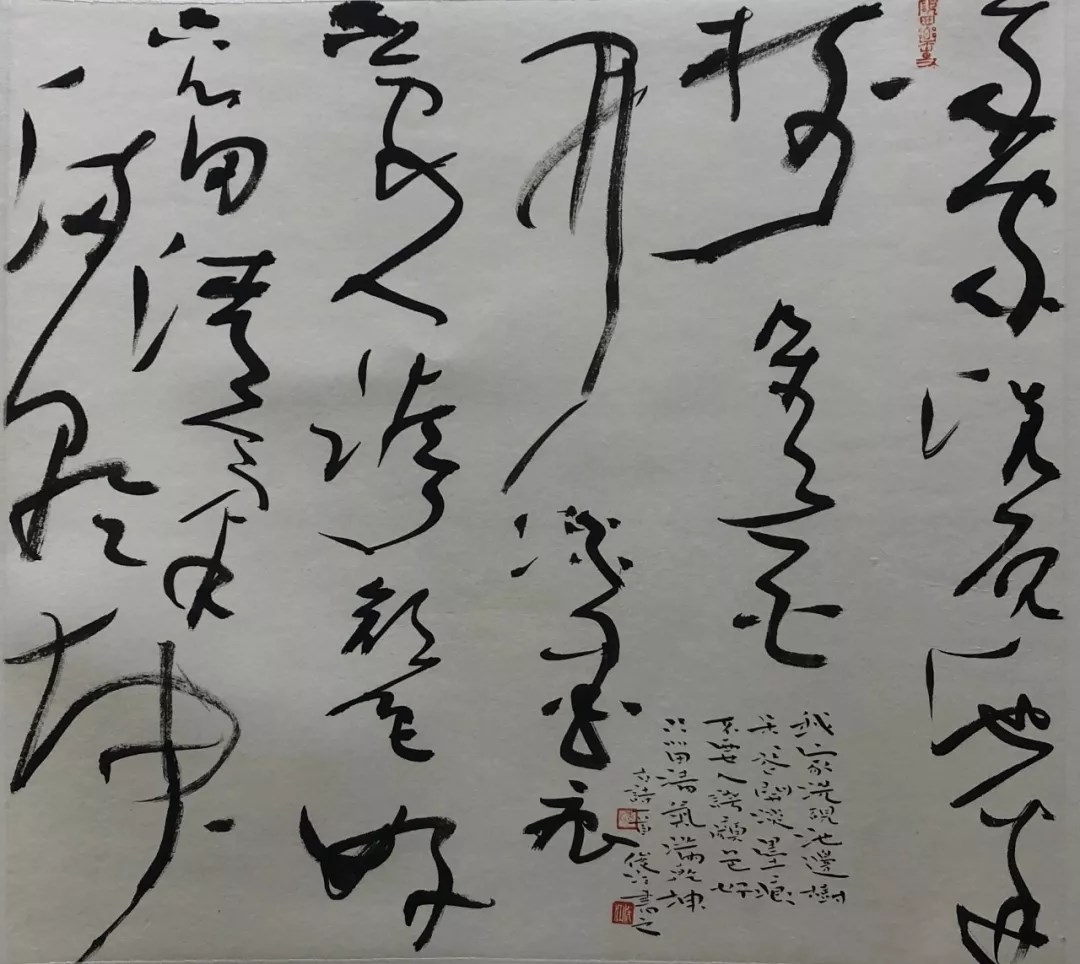 我家洗硯池邊
樹朵朵花
開淡墨痕
不要人誇顏色好
只留清氣
滿乾坤
我家洗硯池邊樹
朵花開淡墨痕
不要人誇顏色好
只留清氣滿乾坤
古詩一首 俊書之